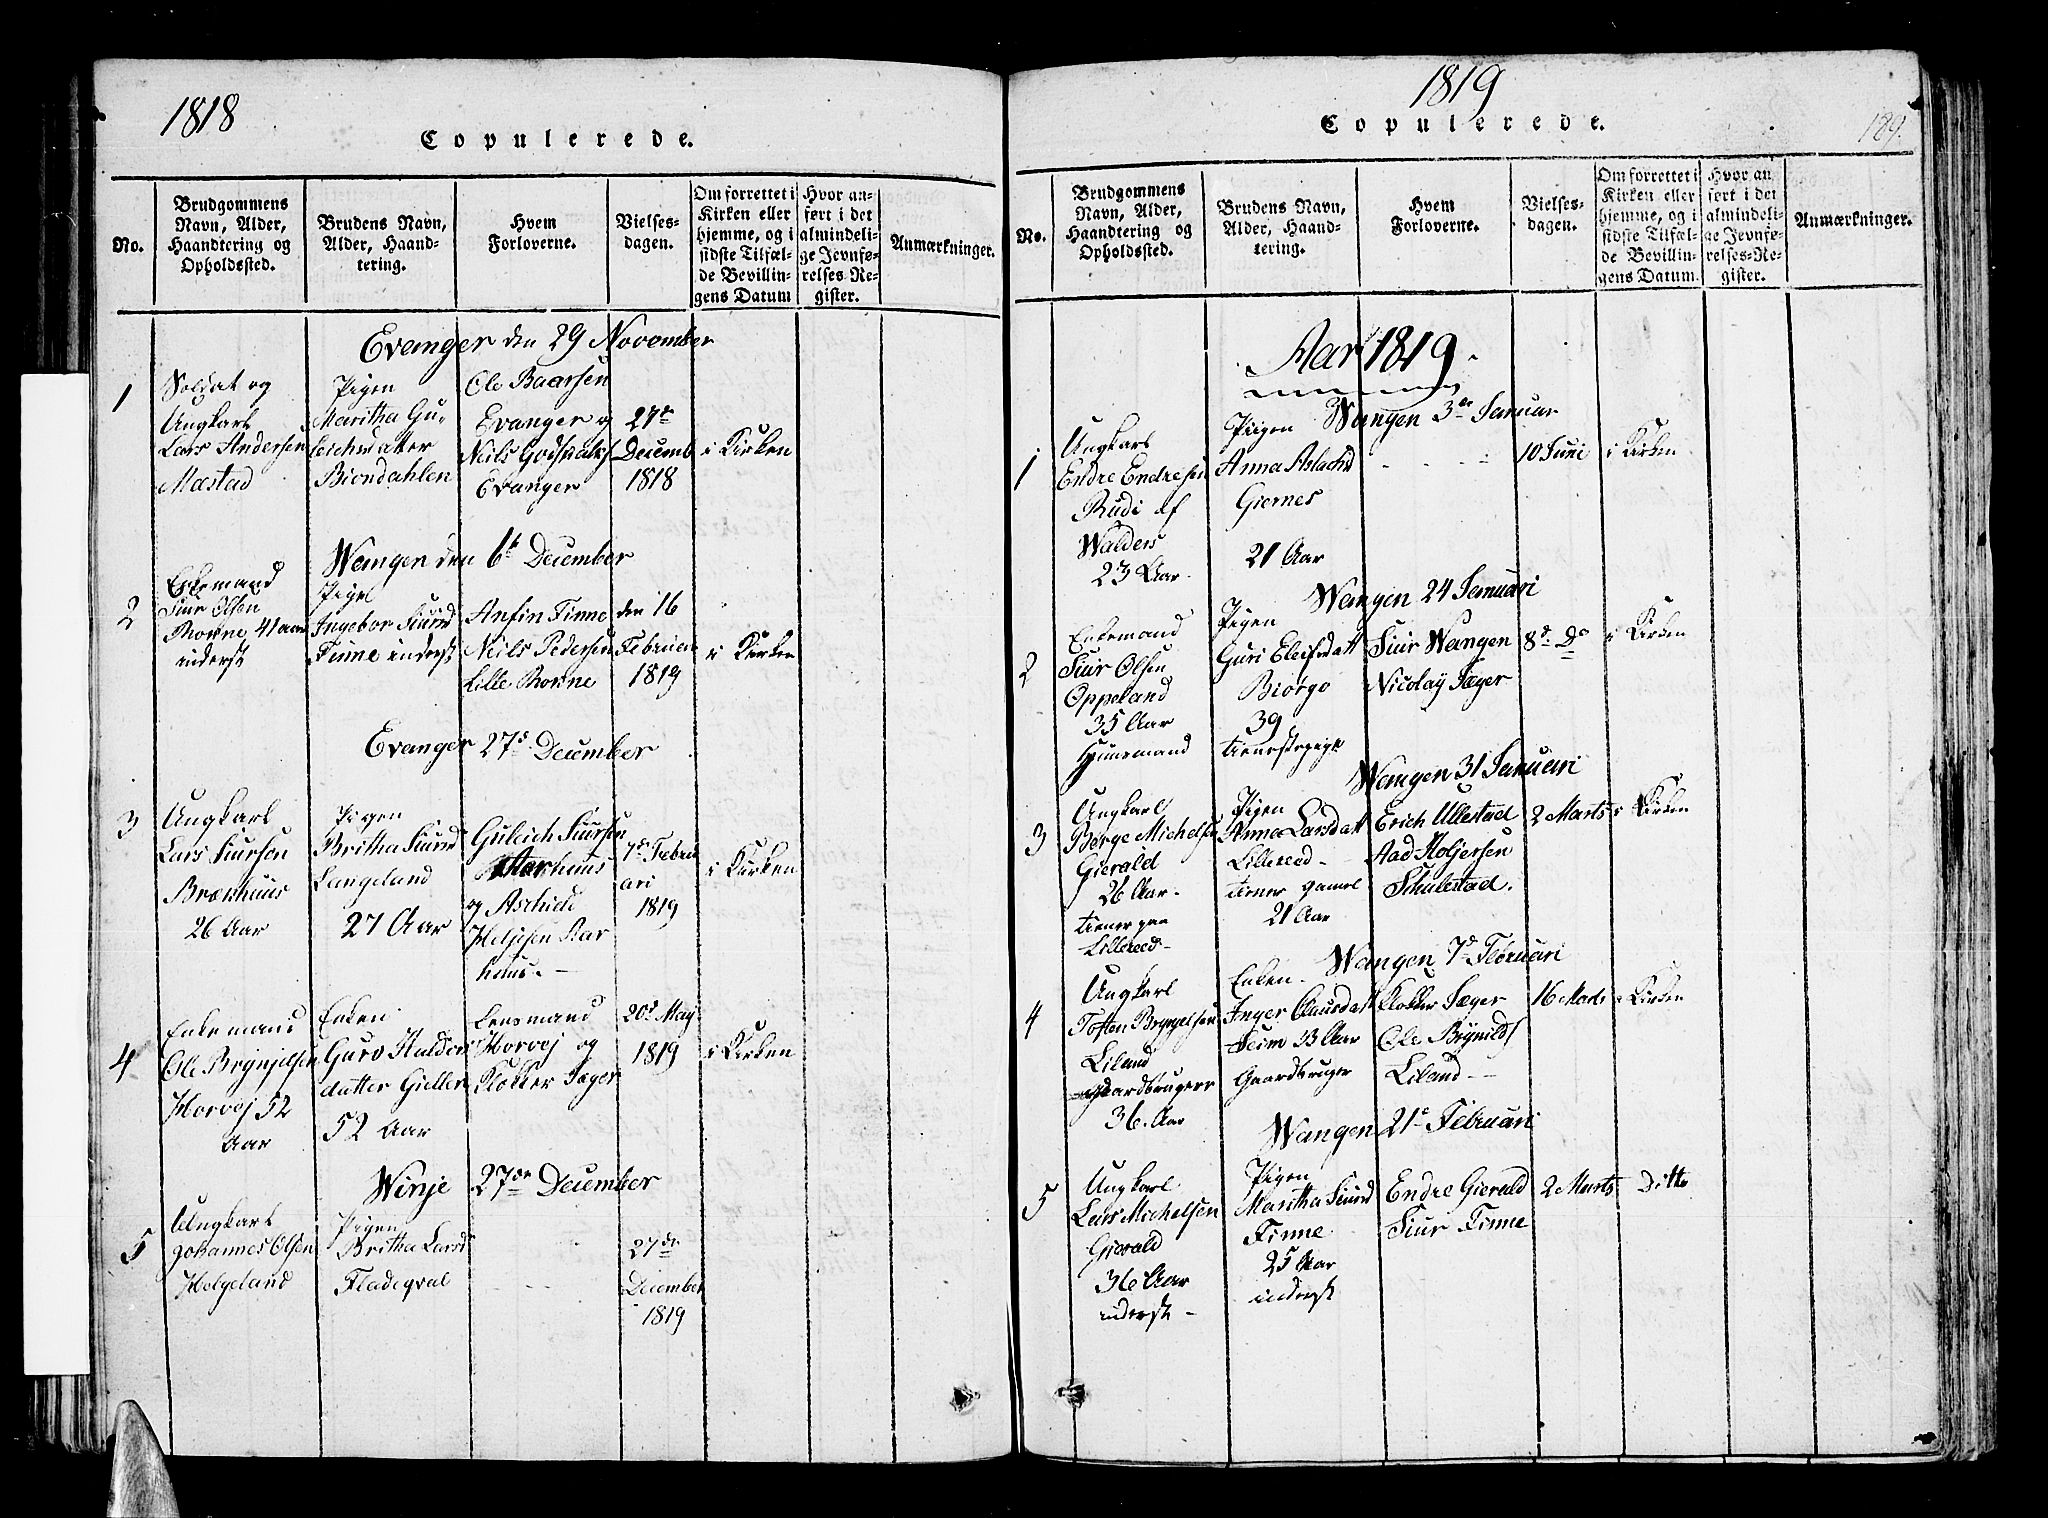 1818
Copulerede.
No.
Brudgommens
Navn, Alder,
Haandtering og
Opholdssted.
Brudens Navn,
Alder, Haand-
tering.
Hvem
Forloverne.
Vielses-
dagen.
Om forrettet i
Kirken eller
hjemme, og i
sidste Tilfæl-
de Bevillin-
gens Datum
Hvor an-
ført i det
almindeli-
ge Jevnfø-
relses-Re-
gister.
Anmærkninger.
Evanger den 29 November
1
Soldat og
Ungkarl
Lars Andersen
Mæstad
Pigen
Maritha Gu-
leichsdatter
Biondahlen
Ole Baarsen
Evanger og
Niels Godskalks
Evanger
27de
Decemb
1818
i Kirken
Wangen den 6te December
2
Enkemand
Siur Olsen
Ronne 41 aar
inderst
Pige
Ingebor Siurd
Finne inderst
Anfin Finne
Niels Pedersen
Lille Ronne
den 16
Februari
1819
i Kirken
Evanger 27de December
3
Ungkarl
Lars Siursen
Brækhuus
26 Aar
Pigen
Britha Siurd
Langeland
27 Aar
Guleich Siursen
Aarhuus
og
Heljesen Aar
huus.
7de Febru
ari
1819
i Kirken
4
Enkemand
Ole Brynjelsen
Horvej 52
Aar
Enken
Guro Haldors
datter Gieller
52 Aar
Lensmand
Horvej og
Klokker Sæger
20de Maj
1819
i Kirken
Winje 27de December
5
Ungkarl
Johannes Olsen
Helgeland
Pigen
Britha Larsd
Fladeqval
27de
December
1819
1819
Copulerede.
189.
No.
Brudgommens
Navn, Alder,
Haandtering og
Opholdssted.
Brudens Navn,
Alder, Haand-
tering.
Hvem
Forloverne.
Vielses-
dagen.
Om forrettet i
Kirken eller
hjemme, og i
sidste Tilfæl-
de Bevillin-
gens Datum
Hvor an
ført i det
almindeli-
ge Jevnfø-
relses-Re-
gister.
Anmærkninger.
Aar 1819.
Wangen 3de Januar
1
Ungkarl
Endre Endresen
Rudi af
Walders
23 Aar
Piigen
Anna Aslachsd
Giernes
21 Aar
10 Juni
i Kirken
Wangen 24 Januari
2
Enkemand
Siur Olsen
Oppeland
35 Aar
Huusmand
Pigen
Guri Eleifsdatt
Biørgo
39
tienestepige
Siur Wangen
Nicolaÿ Sæger
8de Do
i Kirken
Wangen 31 Januari
3
Ungkarl
Børge Michelsen
Gierald
26 Aar
tiener paa
Lillereed
Pigen
Anna Larsdatt
Lillereed
tiener gamel
21 Aar
Erich Ullestad
Aad Holjersen
Schulestad.
2 Marts
i Kirken
Wangen 7de Februari
4
Ungkarl
Tosten Bryggelsen
Liland
gaardbruger
36. Aar
Enken.
Inger Clausdatt
Seim 33 Aar
Gaardbruger
Klokker Sæger
Ole Brÿnilds
Liland
16 Marts
i Kirken
Wangen 21de Februari
5
Ungkarl
Lars Michelsen
Gierald
36 Aar
inderst
Pigen
Maritha Siurd
Finne
25 Aar
inderst
Endre Gierald
Siur Finne
2 Marts
Ditto